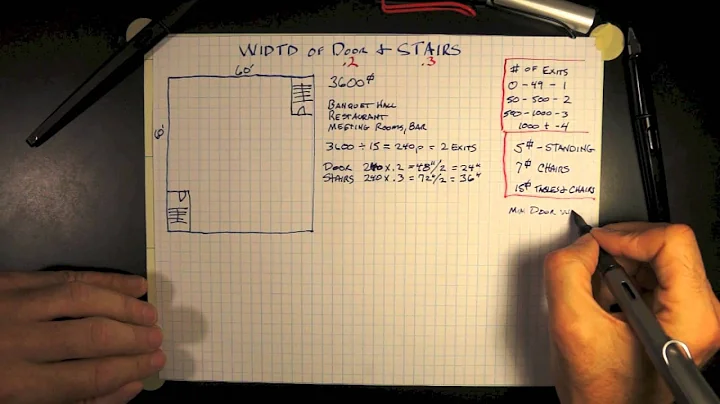 WIDTD OF DOOR & STAIRS
.2 .3
60'
60'
3600⌀
BANQUET HALL
RESTAURANT
MEETING ROOMS, BAR
3600 ÷ 15 = 240 = 2 EXITS
DOOR 240 x .2 = 48"/2 = 24"
STAIRS 240 x .3 = 72"/2 = 36"
# OF EXITS
0 - 49 - 1
50 - 500 - 2
500 - 1000 - 3
1000 + - 4
5⌀ - STANDING
7⌀ CHAIRS
15⌀ TABLES & CHAIRS
MIN DOOR